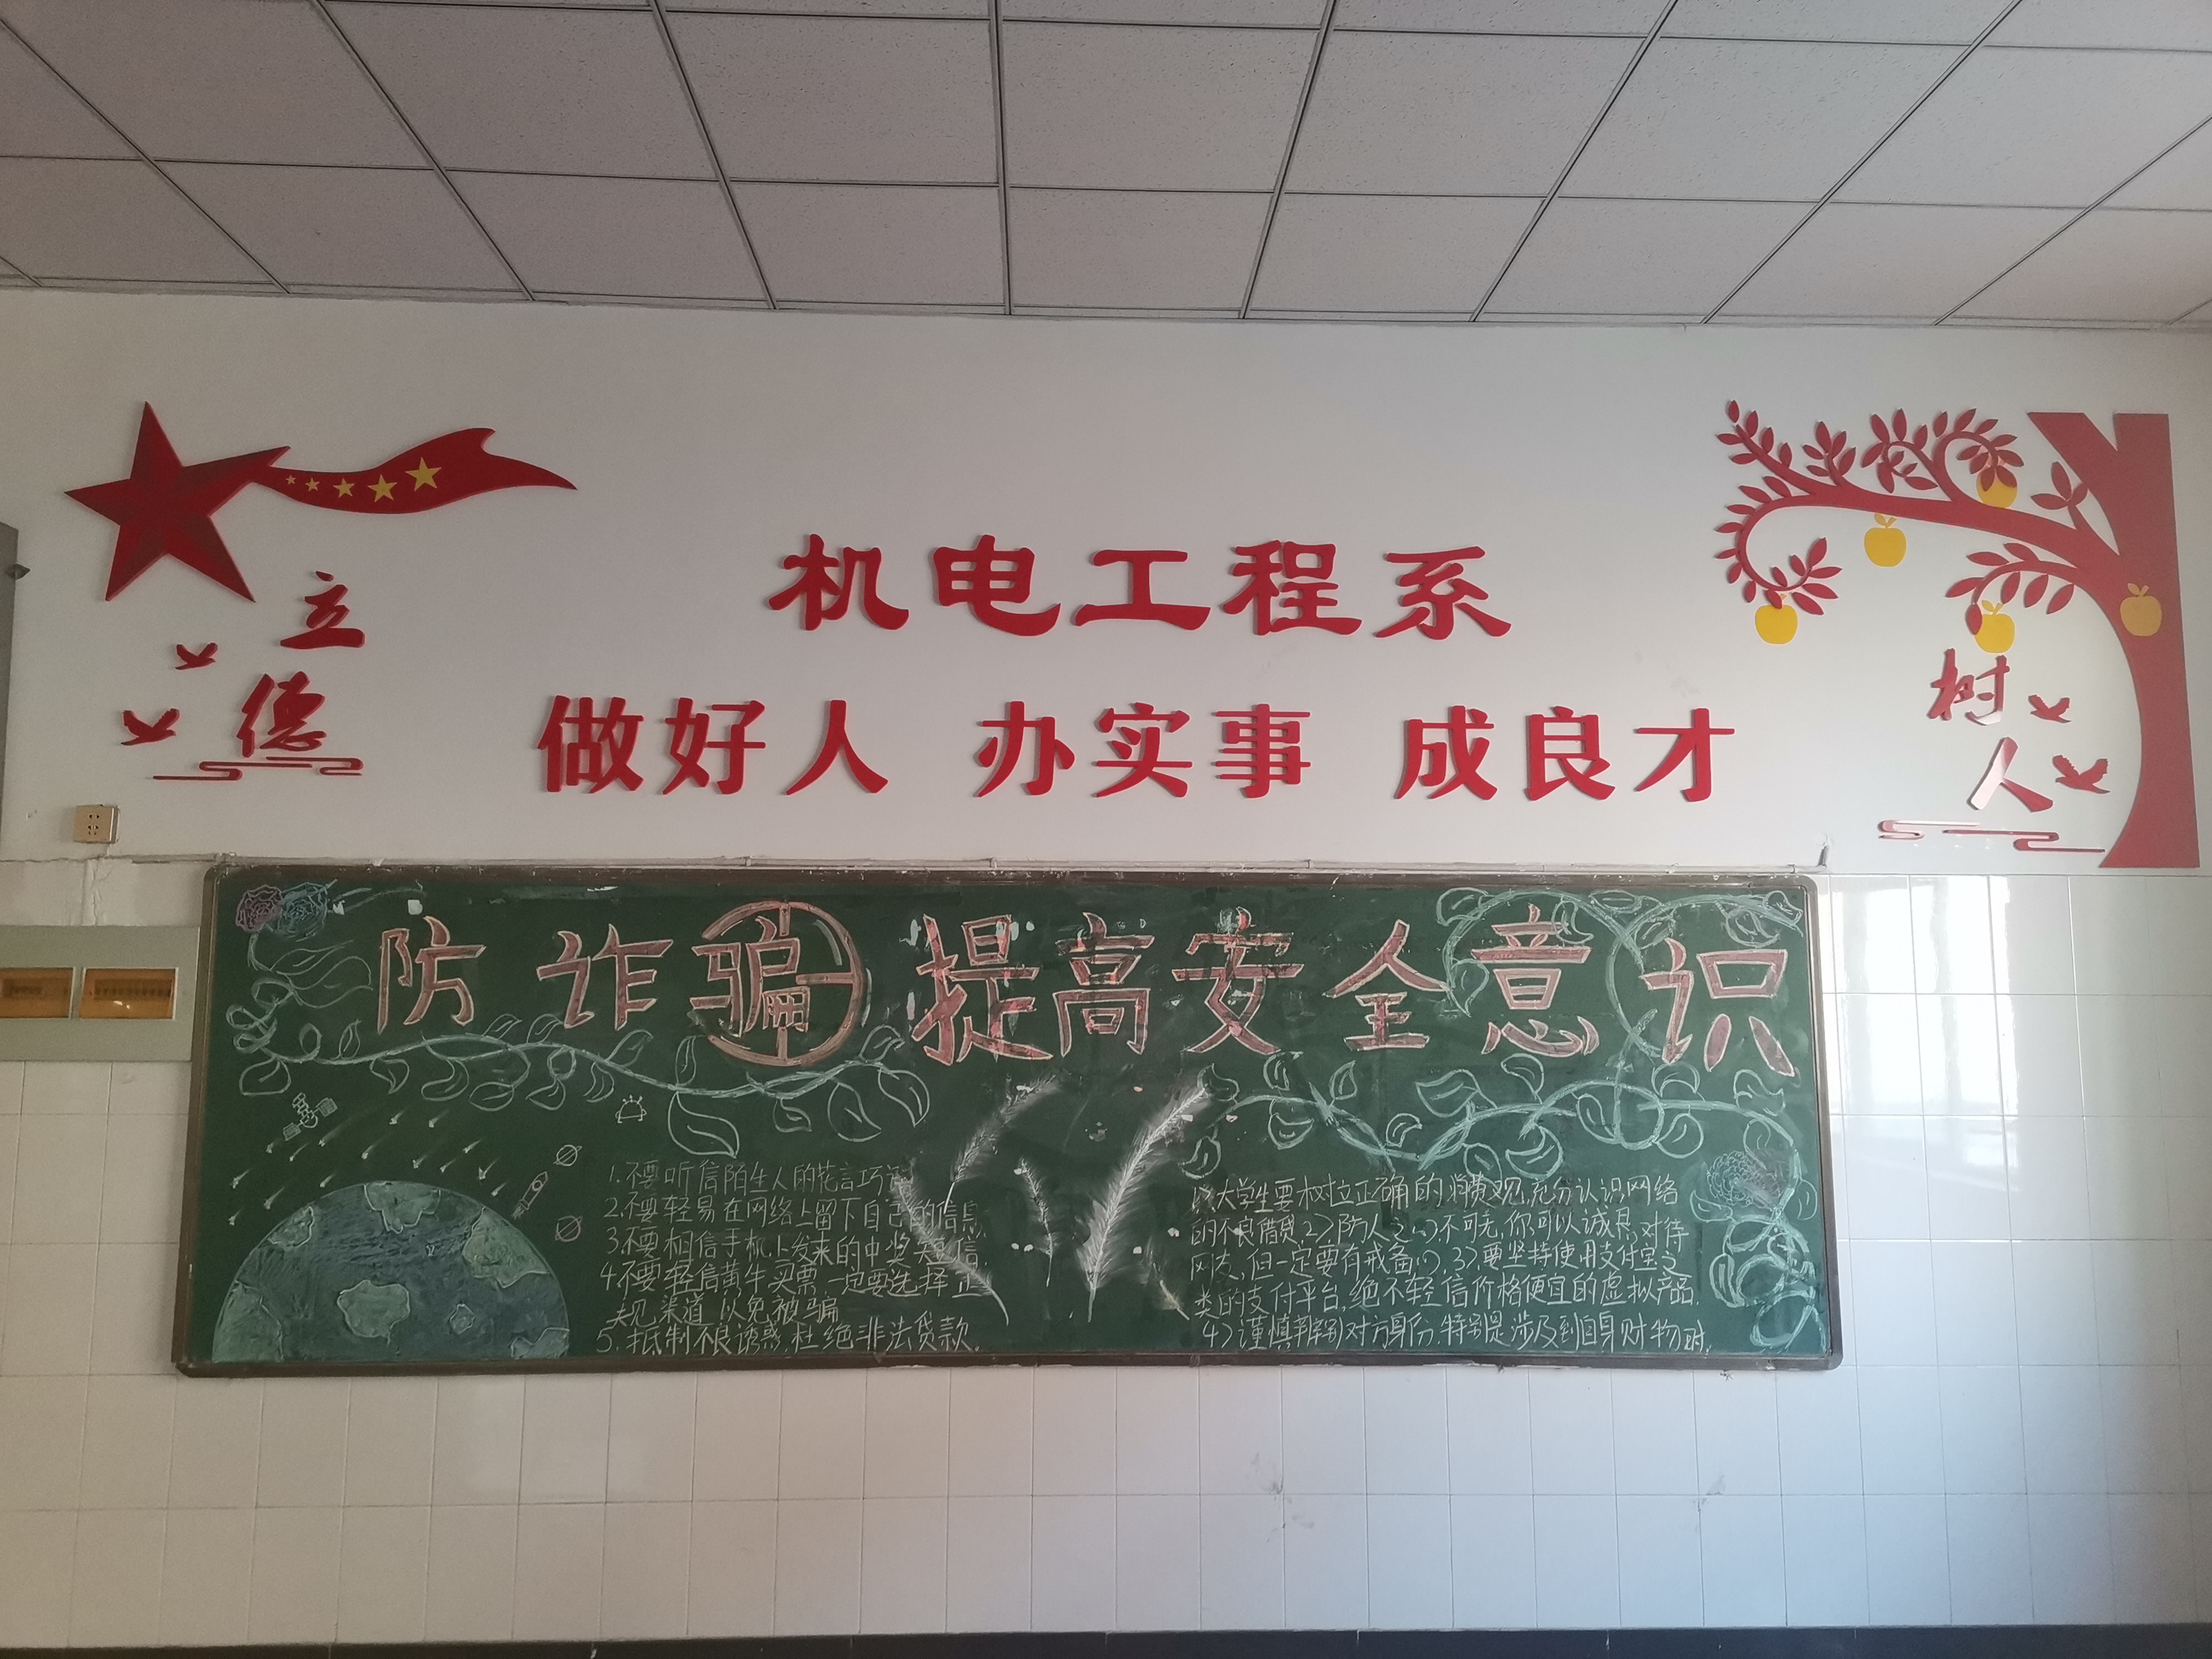 立
德
机电工程系
做好人 办实事 成良才
树
人
防诈骗 提高安全意识
1.不要听信陌生人的花言巧语
2.不要轻易在网络上留下自己的信息
3.不要相信手机上发来的中奖类短信
4.不要轻信黄牛买票,一定要选择正
规渠道,以免被骗
5.抵制不良诱惑,杜绝非法贷款.
1>大学生要树立正确的消费观,充分认识网络
的不良借贷,2>防人之心不可无,你可以诚恳对待
网友,但一定要有戒备心,3>要坚持使用支付宝之
类的支付平台,绝不轻信价格便宜的虚拟产品.
4>谨慎辨别对方身份,特别是涉及到自身财物时.